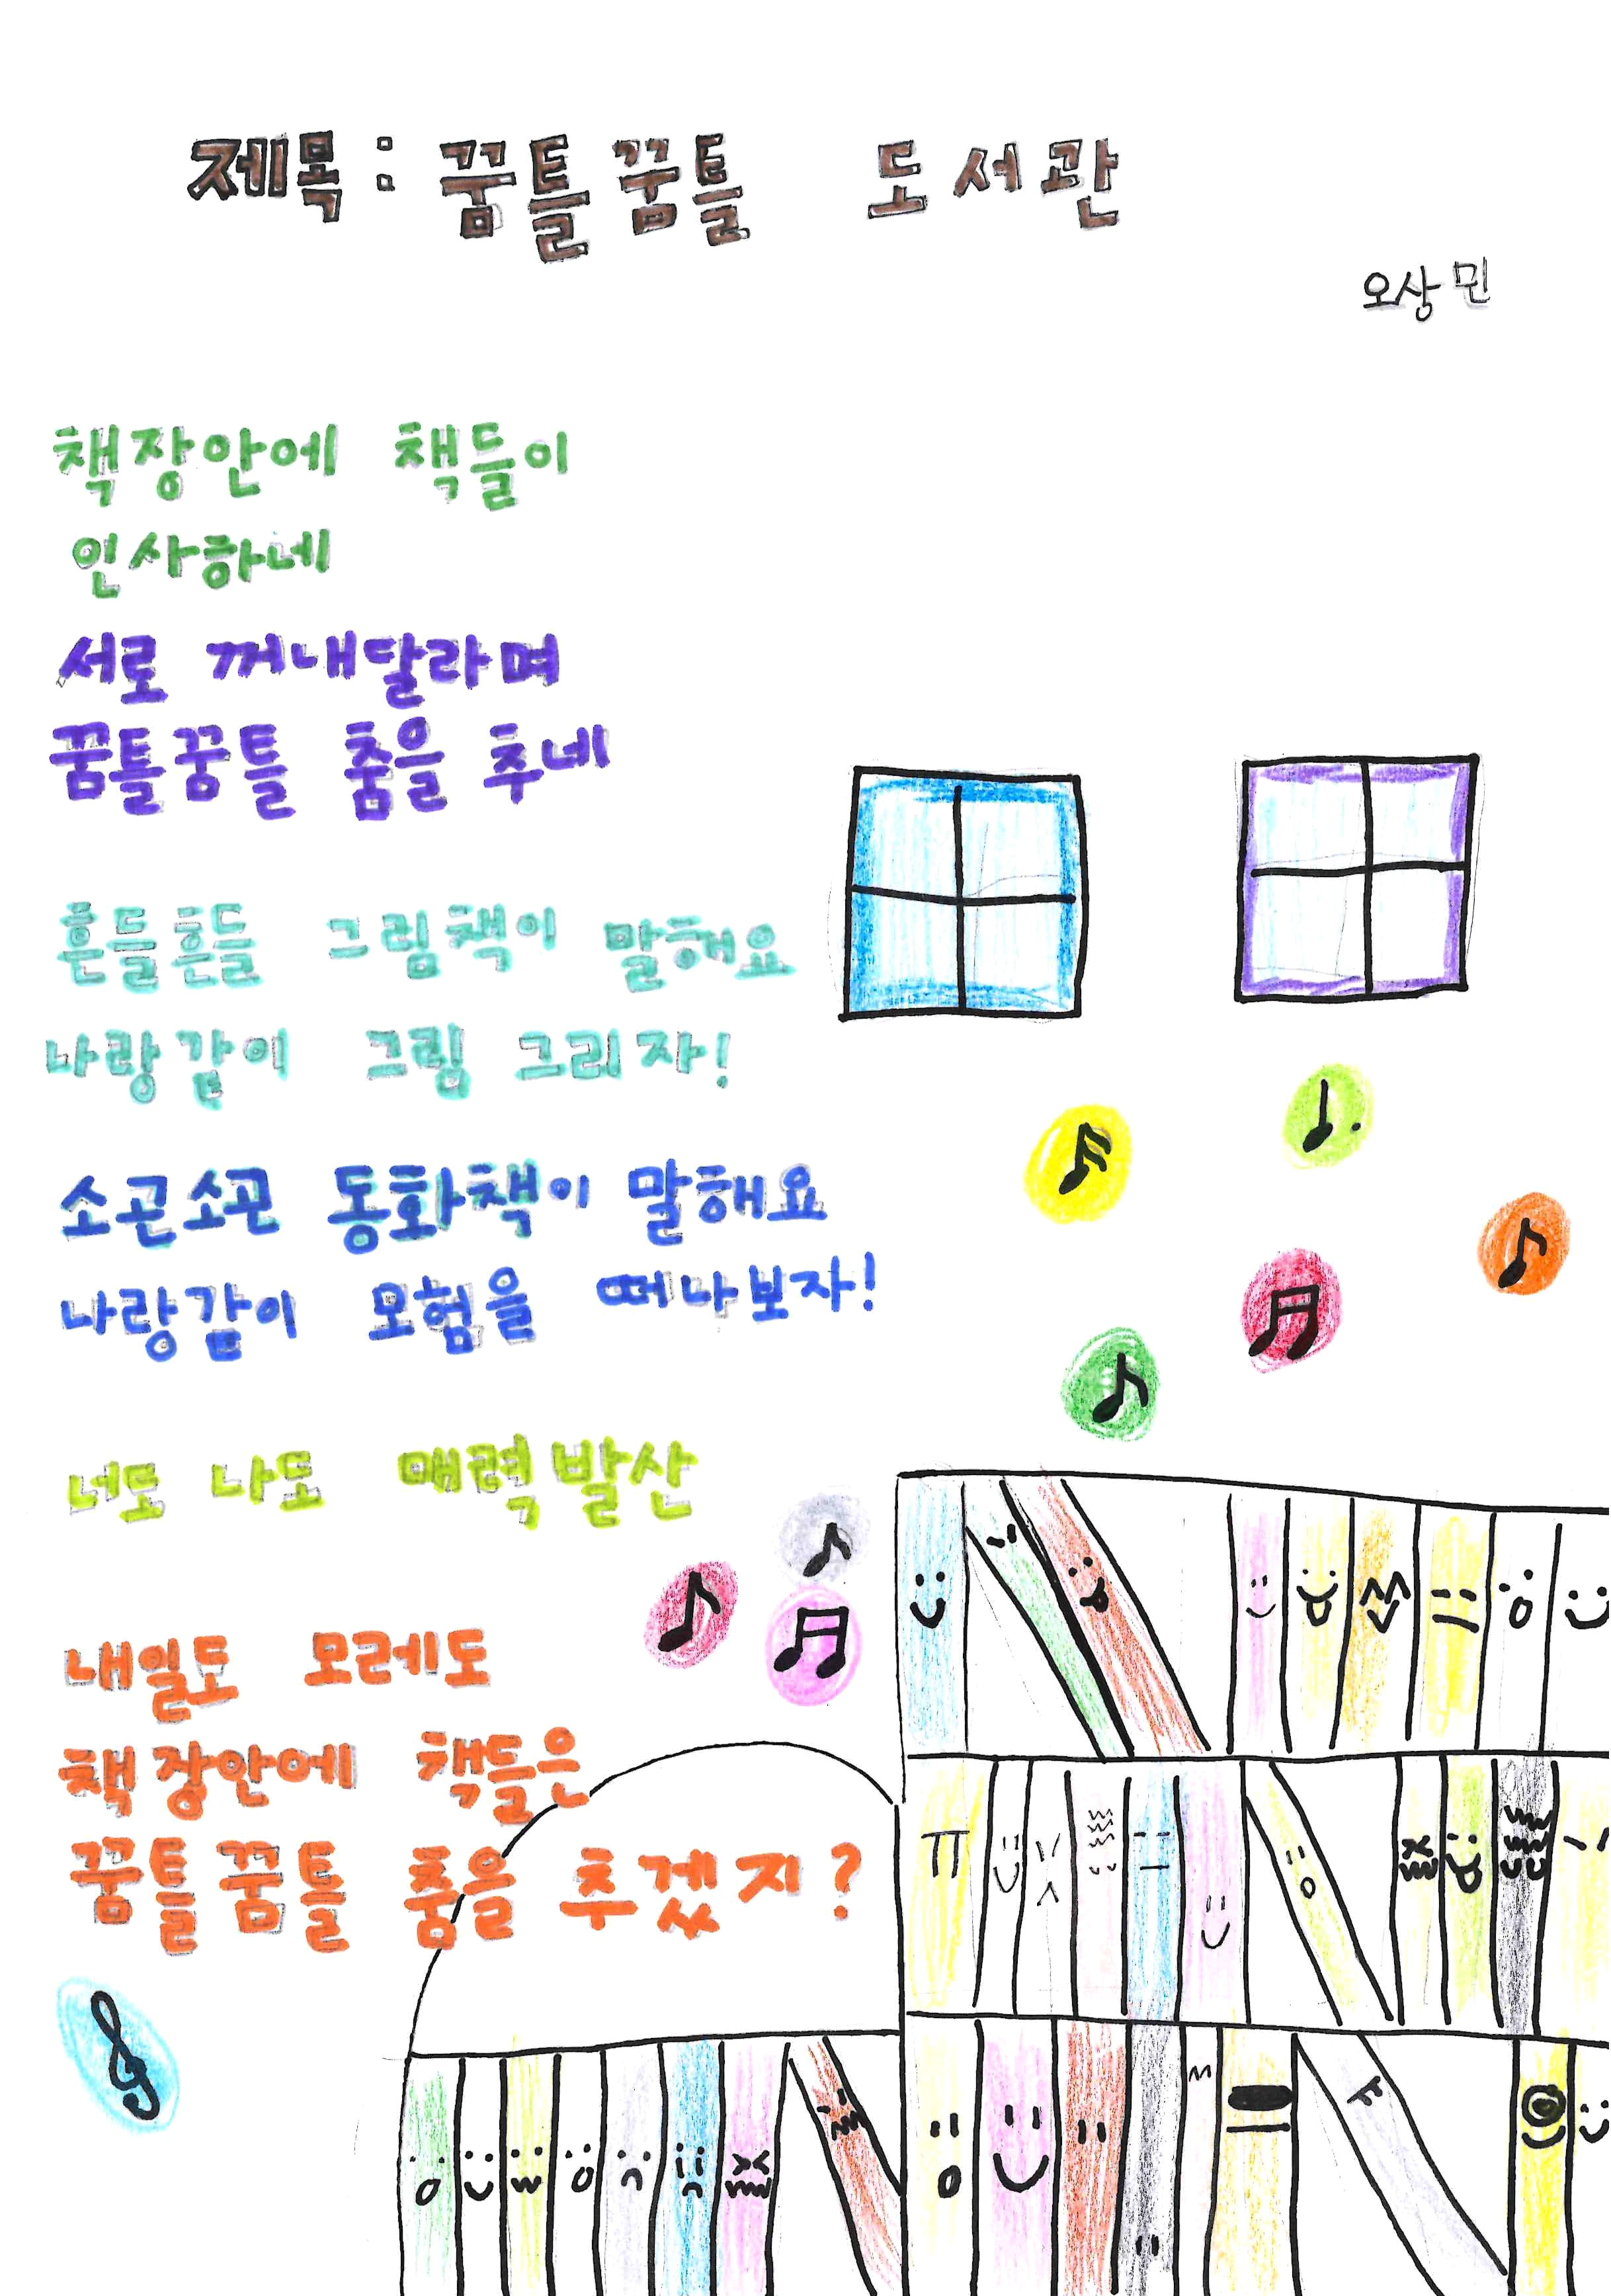 제목: 꿈틀꿈틀 도서관
오상민
책장안에 책들이
인사하네
서로 꺼내달라며
꿈틀꿈틀 춤을 추네
흔들흔들 그림책이 말해요
나랑같이 그림 그리자!
소곤소곤 동화책이 말해요
나랑같이 모험을 떠나보자!
너도 나도 매력발산
내일도 모레도
책장안에 책들은
꿈틀꿈틀 춤을 추겠지?